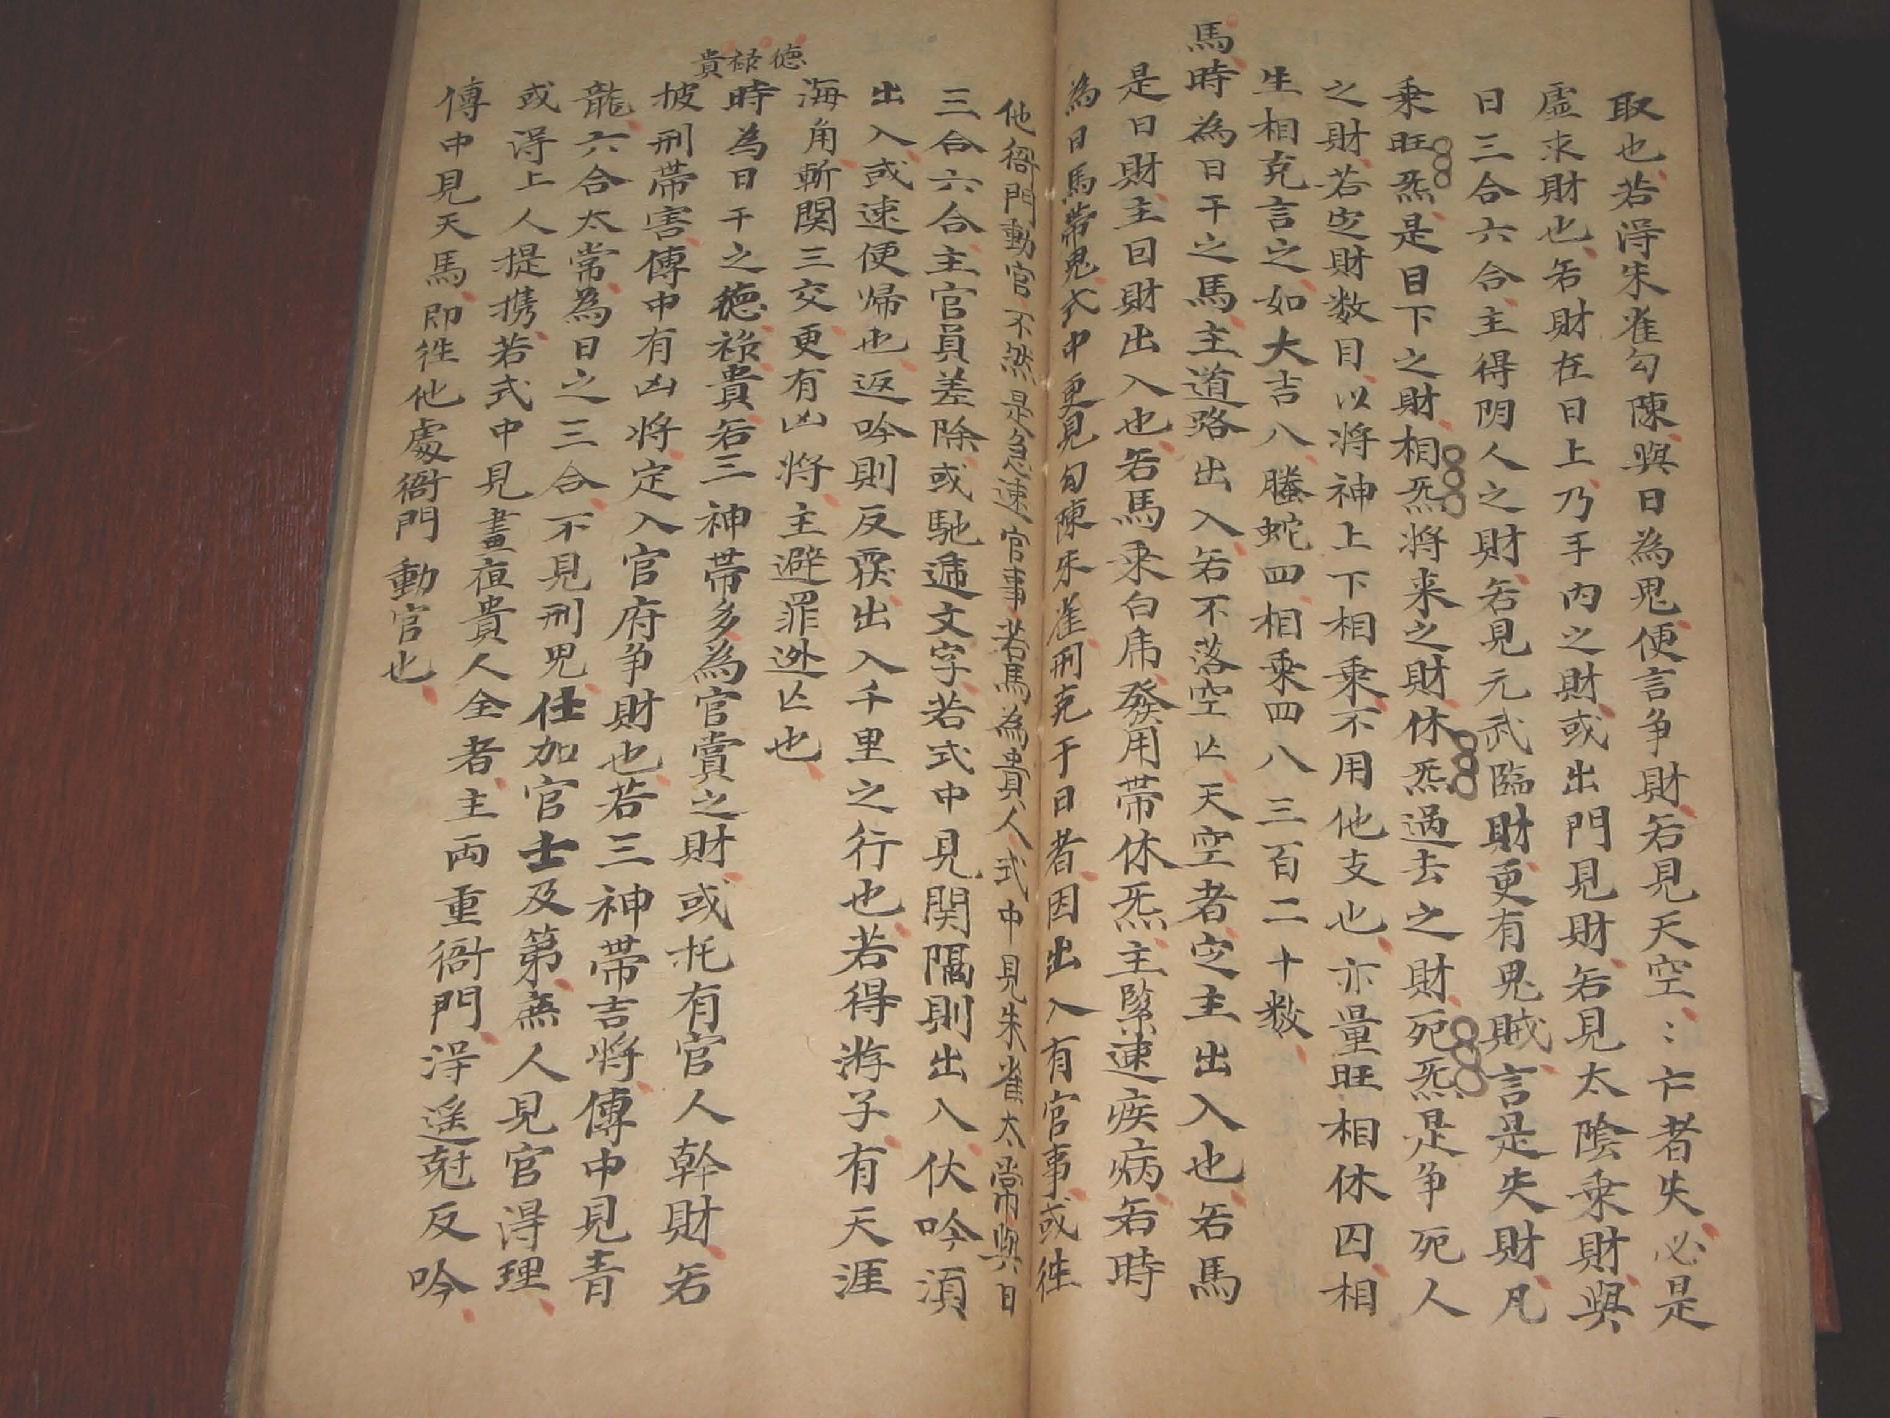 取也若淂朱雀勾陳與日為鬼便言争財若見天空〻亡者失必是
虛求財也若財在日上乃手内之財或出門見財若見太陰乗財與
日三合六合主得阴人之財若見元武臨財更有鬼賊言是失財凡
乗旺炁是目下之財相炁将来之財休炁過去之財死炁是争死人
之財若定財数目以将神上下相乗不用他支也亦量旺相休囚相
生相克言之如大吉八螣蛇四相乗四八三百二十数
馬
時為日干之馬主道路出入若不落空亡天空者定主出入也若馬
是日財主因財出入也若馬乗白虎發用带休炁主緊速疾病若時
為日馬带鬼式中更見勾陳朱雀刑克于日者因出入有官事或徃
他衙門動官不然是急速官事若馬為貴人式中見朱雀太常與日
三合六合主官員差除或馳逓文字若式中見関隔則出入伏吟湏
出入或速便帰也返吟則反覆出入千里之行也若得游子有天涯
海角斬関三交更有凶将主避罪迯亡也
德禄貴
時為日干之德禄貴若三神帯多為官賞之財或托有官人幹財若
披刑帯害傳中有凶将定入官府争財也若三神帯吉将傳中見青
龍六合太常為日之三合不見刑児仕加官士及第無人見官淂理
或淂上人提携若式中見晝夜貴人全者主両重衙門淂遥尅反吟
傳中見天馬即徃他處衙門動官也